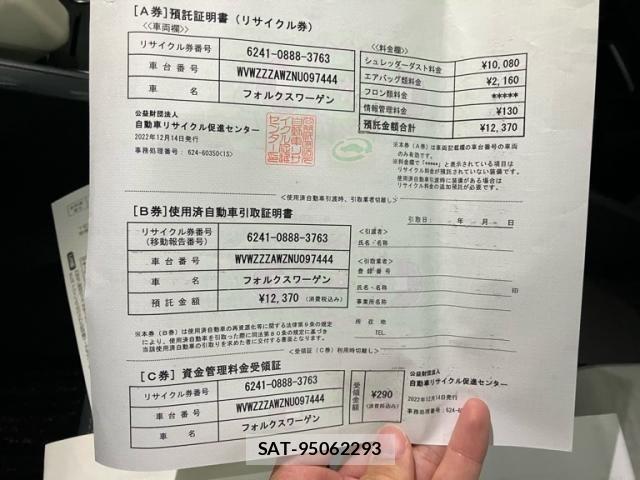 [A券]預託証明書(リサイクル券)
<<車両欄>>
リサイクル券番号 6241-0888-3763
車台番号 WVWZZZAWZNU097444
車 名 フォルクスワーゲン
<<料金欄>>
シュレッダーダスト料金 ¥10,080
エアバッグ類料金 ¥2,160
フロン類料金 *****
情報管理料金 ¥130
預託金額合計 ¥12,370
公益財団法人
自動車リサイクル促進センター
2022年12月14日発行
事務処理番号: 624-60350(1S)
※本券(A券)は車両記載欄の車台番号の車両
のみ有効です。
※料金欄で「*****」と表示されている項目は
リサイクル料金が預託されていない装備です。
使用済自動車引渡時に装備がある場合は
リサイクル料金の追加預託が必要です。
<使用済自動車引渡時、引取業者切離し>
[B券]使用済自動車引取証明書
引取日: 年 - 月 - 日
リサイクル券番号
(移動報告番号) 6241-0888-3763
車台番号 WVWZZZAWZNU097444
車 名 フォルクスワーゲン
預託金額 ¥12,370 (消費税込み)
<引渡者>
氏名・名称
<引取業者>
登録番号
氏名・名称 印
事業所名
所在地
TEL.
※本券(B券)は使用済自動車の再資源化等に関する法律第9条の規定
により、使用済自動車を引取った際に同法第80条の規定に基づき
当該使用済自動車の引取りを求めた者に交付する書面となります。
<受領証(C券)利用時切離し>
[C券]資金管理料金受領証
リサイクル券番号 6241-0888-3763
車台番号 WVWZZZAWZNU097444
車 名 フォルクスワーゲン
受領金額 ¥290
(消費税込み)
公益財団法人
自動車リサイクル促進センター
2022年12月14日発行
事務処理番号: 624-60
SAT-95062293